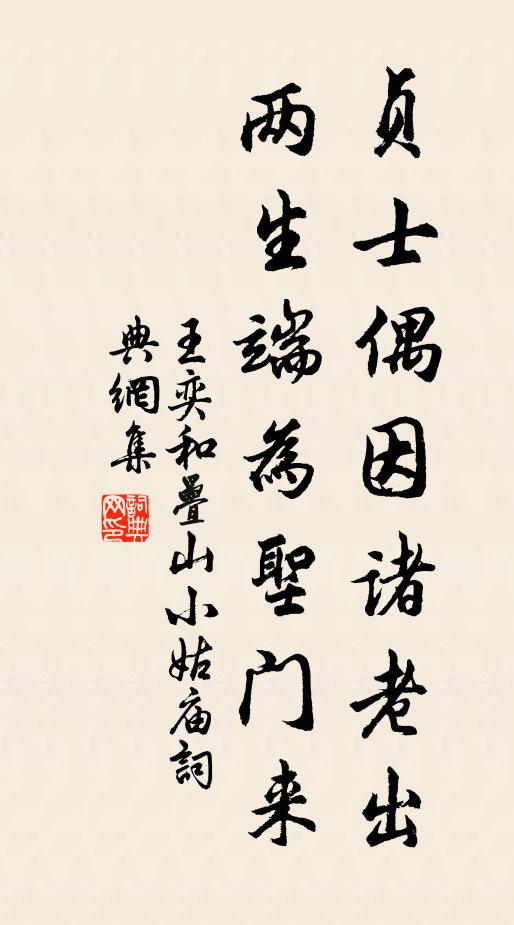 贞士偶因诸老出
两生端為聖门来
王奕和疊山小姑庙詞
典網集
詞典网印